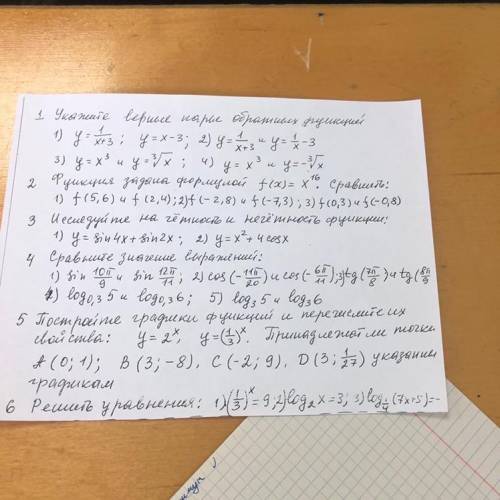 1 Укажите верные пары обратных функций
1) y = 1/(x+3) ; y = x-3; 2) y = 1/(x+3) и y = 1/x - 3
3) y = x³ и y = ∛x ; 4) y = x³ и y = -∛x
2 Функция задана формулой f(x) = x¹⁶. Сравнить:
1) f(5,6) и f(2,4); 2) f(-2,8) и f(-7,3); 3) f(0,3) и f(-0,8)
3 Исследуйте на чётность и нечётность функции:
1) y = sin4x + sin2x; 2) y = x² + 4cosx
4 Сравните значение выражений:
1) sin 10π/9 и sin 12π/11; 2) cos(-11π/20) и cos(-6π/11); 3) tg(7π/8) и tg(8π/9
4) log₀,₃ 5 и log₀,₃ 6; 5) log₃ 5 и log₃ 6
5 Постройте графики функций и перечислите их
свойства: y = 2ˣ, y = (1/3)ˣ. Принадлежат ли точки
A(0; 1); B(3; -8), C(-2; 9), D(3; 1/27) указанным
графикам
6 Решить уравнения: 1) (1/3)ˣ = 9; 2) log₂ x = 3; 3) log₁/₄ (7x+5) = -